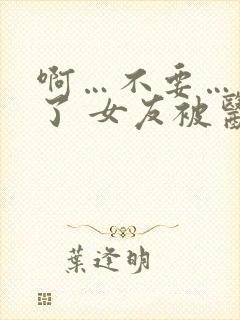 啊…不要…
了 女友被醫
葉逢明